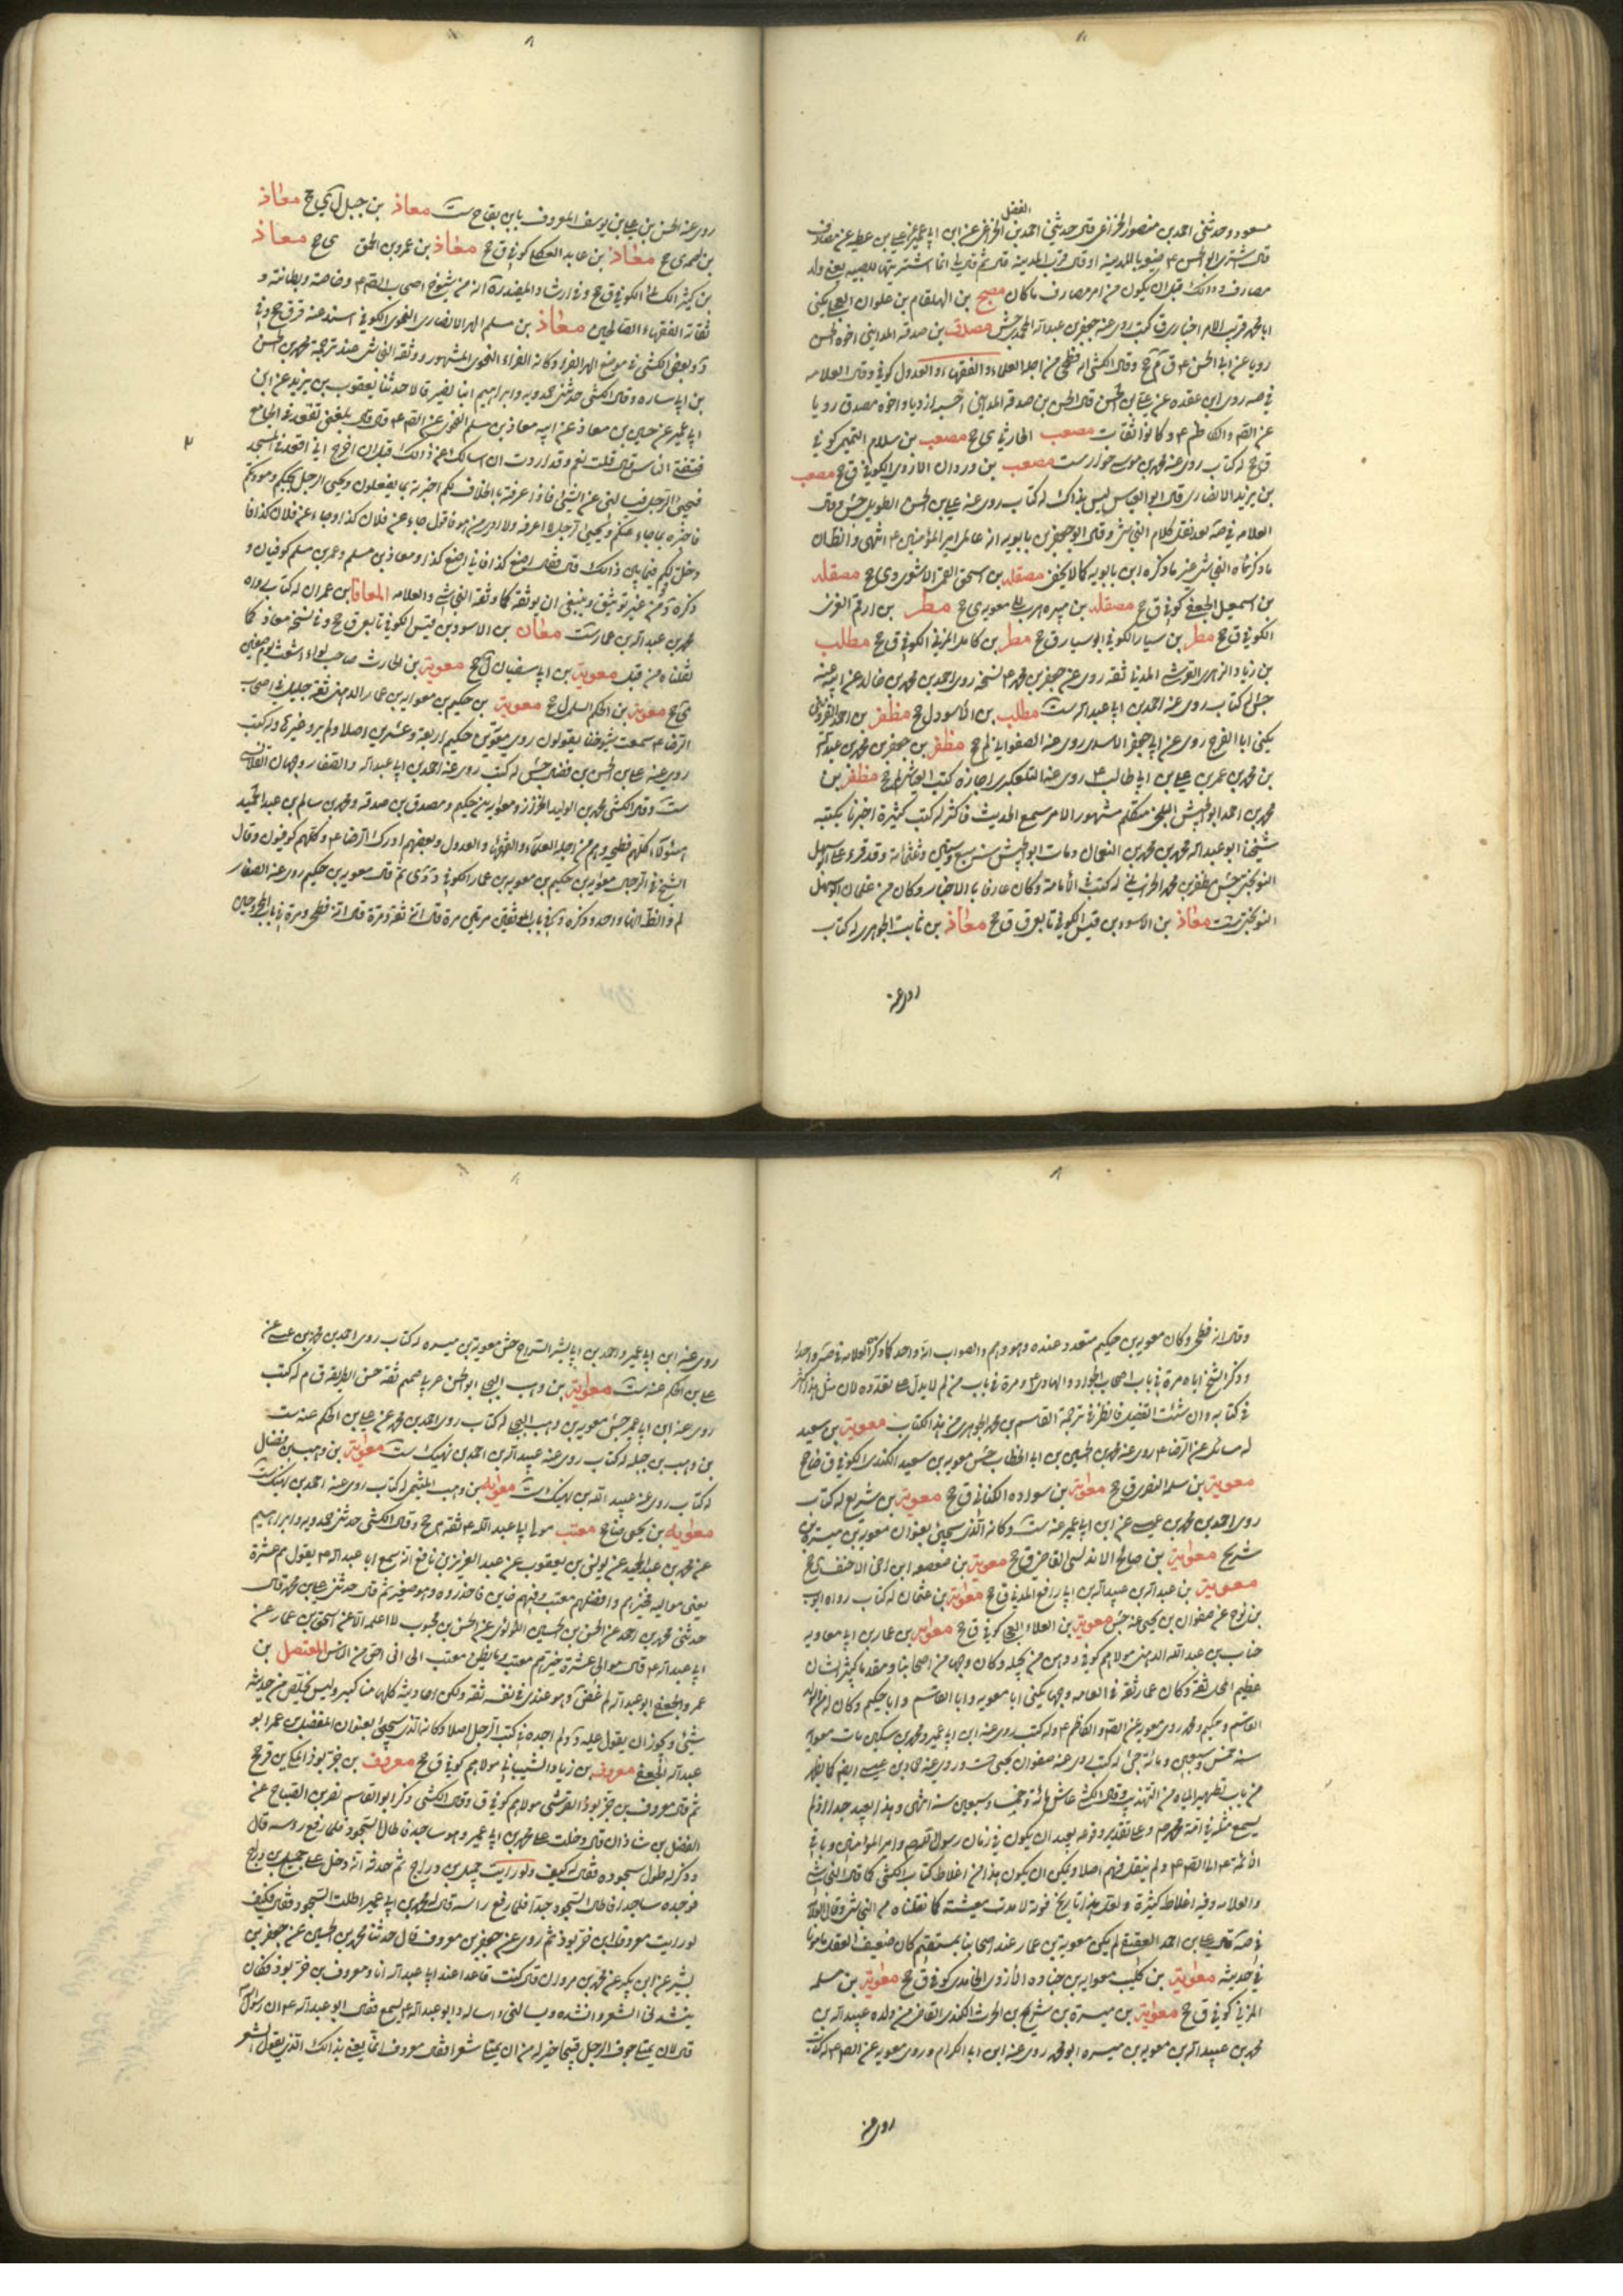 الفضل
مسعود وحدثنى احمد بن منصور الخزاعى قال حدثنى احمد بن الخزاعى عن ابن ابى عمير عن على بن عطيه عن مصادف
قال اشترى ابو الحسن ع ضيعة بالمدينه او قال قرب المدينه قال ثم قال لى انما اشتريتها للصبيه يعنى ولد
مصادف وذلك قبل ان يكون من امر مصادف ما كان مصبح بن الهلقام بن علوان العجلى يكنى
ابا محمد قريب الامر اخبارى ق كتب روى عنه جعفر بن عبد الله المحمدى جش مصدق بن صدقه المداينى اخوه الحسن
رويا عن ابى الحسن ع ق م ج وقال الكشى انه فطحى من اجله العلماء والفقهاء والعدول كوفى وقال العلامه
فى صه روى ابن عقده عن على بن الحسن قال الحسن بن صدقه المداينى احسبه ازديا واخوه مصدق رويا
عن الصم والكاظم ع وكانوا ثقات مصعب الحارثى ى ج مصعب بن سلام التميمى كوفى
ق ج له كتاب روى عنه محمد بن موسى حوراست مصعب بن وردان الازدى الكوفى ق ج مصعب
بن يزيد الانصارى قال ابو العباس ليس بذاك له كتاب روى عنه على بن الحسن الطويل جش وقال
العلامه فى صه بعد نقل كلام النجاشى وقال ابو جعفر بن بابويه انه عامل امير المؤمنين ع انتهى والظان
ما ذكرناه النجاشى غير ما ذكره ابن بابويه كما لا يخفى مصقله بن اسحق القمى الاشعرى دى ج مصقله
بن اسمعيل الجعفى كوفى ق ج مصقله بن هبيره هرب الى معويه ى ج مطر بن ارقم العنزى
الكوفى ق ج مطر بن سيار الكوفى ابو سيار ق ج مطر بن كامل المزنى الكوفى ق ج مطلب
بن زياد الزهرى القرشى المدنى ثقه روى عن جعفر بن محمد ع نسخه روى احمد بن محمد بن خالد عن ابيه عنه
جش له كتاب روى عن احمد بن ابى عبد الله ست مطلب بن الاسود ل ج مظفر بن احمد القزوينى
يكنى ابا الفرج روى عن ابى جعفر الاسدى روى عنه الصفوانى لم ج مظفر بن جعفر بن محمد بن عبد الله
بن محمد بن عمر بن على بن ابى طالب ع روى عنه التلعكبرى اجازه كتب العياشى لم ج مظفر بن
محمد بن احمد ابو الجيش البلخى متكلم مشهور الامر سمع الحديث فاكثر له كتب كثيرة اخبرنا بكتبه
شيخنا ابو عبد الله محمد بن محمد بن النعمان ومات ابو الجيش سنه سبع وستين وثلثمائة وقد قرء على ابى سهل
النوبختى جش مظفر بن محمد الخراسانى له كتب فى الامامة وكان عارفا بالاخبار وكان من غلمان ابى سهل
النوبختى ست معاذ بن الاسود بن قيس الكوفى تابعى ق ق ج معاذ بن ثابت الجوهرى له كتاب
روى عنه
روى عنه الحسن بن على بن يوسف المعروف بابن بقاح ست معاذ بن جبل ل ى ج معاذ
بن طعمه ى ج معاذ بن عابد العكلى كوفى ق ج معاذ بن عمرو بن الحمق ى ج معاذ
بن كثير الكسائى الكوفى ق ج وفى ارشاد المفيد ره انه من شيوخ اصحاب الصم ع وخاصته وبطانته و
ثقاته الفقهاء الصالحين معاذ بن مسلم الهراء الانصارى النحوى الكوفى اسند عنه ق ق ج وفى
بن ابى ساره وقال الكشى حدثنى حمدويه وابراهيم ابنا نصير قالا حدثنا يعقوب بن يزيد عن ابن
ابى عمير عن حسين بن معاذ عن ابيه معاذ بن مسلم النحوى عن الصم ع قال قال بلغنى تقعد فى الجامع
فتفتى الناس قال قلت نعم وقد اردت ان اسالك عن ذلك قبل ان اخرج انى اقعد فى المسجد
فيجئ الرجل فيسالنى عن الشئ فاذا عرفته بالخلاف لكم اخبرته بما يفعلون ويجئ الرجل بحبكم ومودتكم
فاخبره بما جاء عنكم ويجئ الرجل لا اعرفه ولا ادرى من هو فاقول جاء عن فلان كذا وجاء عن فلان كذا فا
دخل قولكم فيما بين ذلك قال فقال اصنع كذا فانى اصنع كذا ومعاذ بن مسلم وعمر بن مسلم كوفيان و
ذكره د من غير توثيق وينبغى ان يوثقه كما وثقه النجاشى والعلامه المعافا بن عمران له كتاب رواه
محمد بن عبد الله بن عمار ست معان بن الاسود بن قيس الكوفى تابعى ق ج وفى نسخه معاذ كما
نقلناه من قبل معوية بن ابى سفيان ل ج معوية بن الحارث صاحب لواء الاشعث يوم صفين
ى ج معوية بن الحكم السلمى ل ج معوية بن حكيم بن معويه بن عمار الدهنى ثقه جليل فى اصحاب
الرضا ع سمعت شيوخنا يقولون روى معوية بن حكيم اربعة وعشرين اصلا ولم يرو غيرها وله كتب
روى عنه على بن الحسن بن فضال جش له كتب روى عنه احمد بن ابى عبد الله والصفار وحمدان القلانسى
ست وقال الكشى محمد بن الوليد الخزاز ومعوية بن حكيم ومصدق بن صدقه ومحمد بن سالم بن عبد الحميد
هؤلاء كلهم فطحية وهم من اجله العلماء والفقهاء والعدول وبعضهم ادرك الرضا ع وكلهم كوفيون وقال
الشيخ فى الرجال معويه بن حكيم بن معويه بن عمار الكوفى د دى ثم قال معويه بن حكيم روى عنه الصفار
لم والظ انهما واحد وذكره د فى باب الموثقين مرتين مرة قال انه ثقة ومرة قال انه فطحى ومرة فى باب المجروحين
وقال انه فطحى وكان معويه بن حكيم متعدد عنده وهو وهم والصواب انه واحد كما ذكره العلامه فى صه واحدا
وذكر الشيخ اياه مرة فى باب اصحاب الجواد والهادى ع ومرة فى باب من لم لا يدل على تعدده لان مثل هذا كثير
فى كتابه وان شئت التفصيل فانظر فى ترجمة القاسم بن محمد الجوهرى من هذا الكتاب معوية بن سعيد
له مسائل عن الرضا ع روى عنه محمد بن الحسين بن ابى الخطاب جش معويه بن سعيد الكندى الكوفى ق ضا ج
معوية بن سلمه النصرى ق ج معوية بن سواده الكنانى ق ج معوية بن شريح له كتاب
روى احمد بن محمد بن عيسى عن ابن ابى عمير عنه ست وكانه الذى سيجئ بعنوان معويه بن ميسره بن
شريح معوية بن صالح الاندلسى القاضى ق ج معوية بن صعصعه ابن اخى الاحنف ى ج
معوية بن عبد الله بن عبيد الله بن ابى رافع المدنى ق ج معوية بن عثمان له كتاب رواه ايوب
بن نوح عن صفوان بن يحيى عنه جش معوية بن العلاء العجلى كوفى ق ج معوية بن عمار بن ابى معاويه
خباب بن عبد الله الدهنى مولاهم كوفى ودهن من بجيله وكان وجها من اصحابنا ومقدما كبير الشان
عظيم المحل ثقة وكان عمار ثقه فى العامه وجها يكنى ابا معويه وابا القاسم وابا حكيم وكان له من الولد
القاسم وحكيم ومحمد روى معويه عن الصم والكاظم ع وله كتب روى عنه ابن ابى عمير ومحمد بن سكين مات معويه
سنه خمس وسبعين ومائة جش له كتب روى عنه صفوان بن يحيى ست وروى عنه حماد بن عيسى ايضا كما يظهر
من باب تطهير المياه من التهذيب وقال الكشى عاش مائة وخمسا وسبعين سنه انتهى وهذا بعيد جدا اذ لم
يسمع مثله فى امة محمد ص وعلى تقدير وقوعه يجب ان يكون فى زمان رسول الله ص وامير المؤمنين وباقى
الائمة ع الى الصم ع ولم ينقل منهم اصلا ويمكن ان يكون هذا من اغلاط كتاب الكشى كما قال النجاشى
والعلامه وفيه اغلاط كثيرة ولعل هذا تاريخ فوته لا مدت معيشته كما نقلناه من النجاشى وقال العلامه
فى صه قال على بن احمد العقيقى لم يكن معوية بن عمار عند اصحابنا بمستقيم كان ضعيف العقل مامونا
فى حديثه معوية بن كليب معويه بن جناده الازدى الغامدى كوفى ق ج معوية بن مسلمه
المزنى كوفى ق ج معوية بن ميسره بن شريح بن الحرث الكندى القاضى من ولده عبيد الله بن
محمد بن عبيد الله بن معويه بن ميسره ابو محمد روى عنه ابن ابى الكرام وروى معويه عن الصم ع له كتاب
روى عنه
روى عنه ابن ابى عمير واحمد بن ابى بشير السراج جش معوية بن ميسره له كتاب روى احمد بن محمد بن عيسى عن
على بن الحكم عنه ست معوية بن وهب البجلى ابو الحسن عربى صميم ثقة حسن الطريقه ق م له كتب
روى عنه ابن ابى عمير جش معويه بن وهب البجلى له كتاب روى احمد بن محمد عن على بن الحكم عنه ست
بن وهب بن جبله له كتاب روى عنه عبيد الله بن احمد بن نهيك ست معوية بن وهب بن فضال
له كتاب روى عنه عبيد الله بن نهيك ست معويه بن وهب الميثمى له كتاب روى عنه احمد بن نهيك ست
معويه بن يحيى ضا ج معتب مولى ابى عبد الله ع ثقه م ج وقال الكشى حدثنى حمدويه وابراهيم
عن محمد بن عبد الحميد عن يونس بن يعقوب عن عبد العزيز بن نافع انه سمع ابا عبد الله ع يقول هم عشرة
يعنى مواليه فخيرهم وافضلهم معتب وفيهم خاين فاحذروه وهو صغير ثم قال حدثنى على بن محمد قال
حدثنى محمد بن احمد عن الحسن بن الحسين اللؤلؤى عن الحسن بن محبوب لا اعلمه الا عن اسحق بن عمار عن
ابى عبد الله ع قال موالى عشرة خيرهم معتب وما يظن معتب الى انى احق من الناس المعتصل بن
عمرو الجعفى ابو عبد الله لم غض وهو عندى فى نفسه ثقه ولكن احاديثه كلها مناكير وليس يخلص من حديثه
شئ ويجوز ان يقول عليه ولم اجده فى كتب الرجال اصلا وكانه الذى سيجئ بعنوان المفضل بن عمر ابو
عبد الله الجعفى معروف بن زياد الشيبانى مولاهم كوفى ق ج معروف بن خربوذ المكى ين قر ج
ثم قال معروف بن خربوذ القرشى مولاهم كوفى ق وقال الكشى وذكر ابو القاسم نصر بن الصباح عن
الفضل بن شاذان قال دخلت على محمد بن ابى عمير وهو ساجد فاطال السجود فلما رفع راسه قال
وذكر له طول سجوده فقال له كيف ولو رايت جميل بن دراج ثم حدثه انه دخل على جميل بن دراج
فوجده ساجدا فاطال السجود جدا فلما رفع راسه قال له محمد بن ابى عمير اطلت السجود فقال فكيف
لو رايت معروف ابن خربوذ ثم روى عن جعفر بن معروف قال حدثنا محمد بن الحسين عن جعفر بن
بشير عن ابن بكير عن محمد بن مروان قال كنت قاعدا عند ابى عبد الله انا ومعروف بن خربوذ فكان
ينشدنى الشعر وانشده ويسالنى واساله وابو عبد الله ع يسمع فقال ابو عبد الله ع ان رسول الله
قال لان يمتلى جوف الرجل قيحا خير له من ان يمتلى شعرا فقال معروف انما يعنى بذلك الذى يقول الشعر